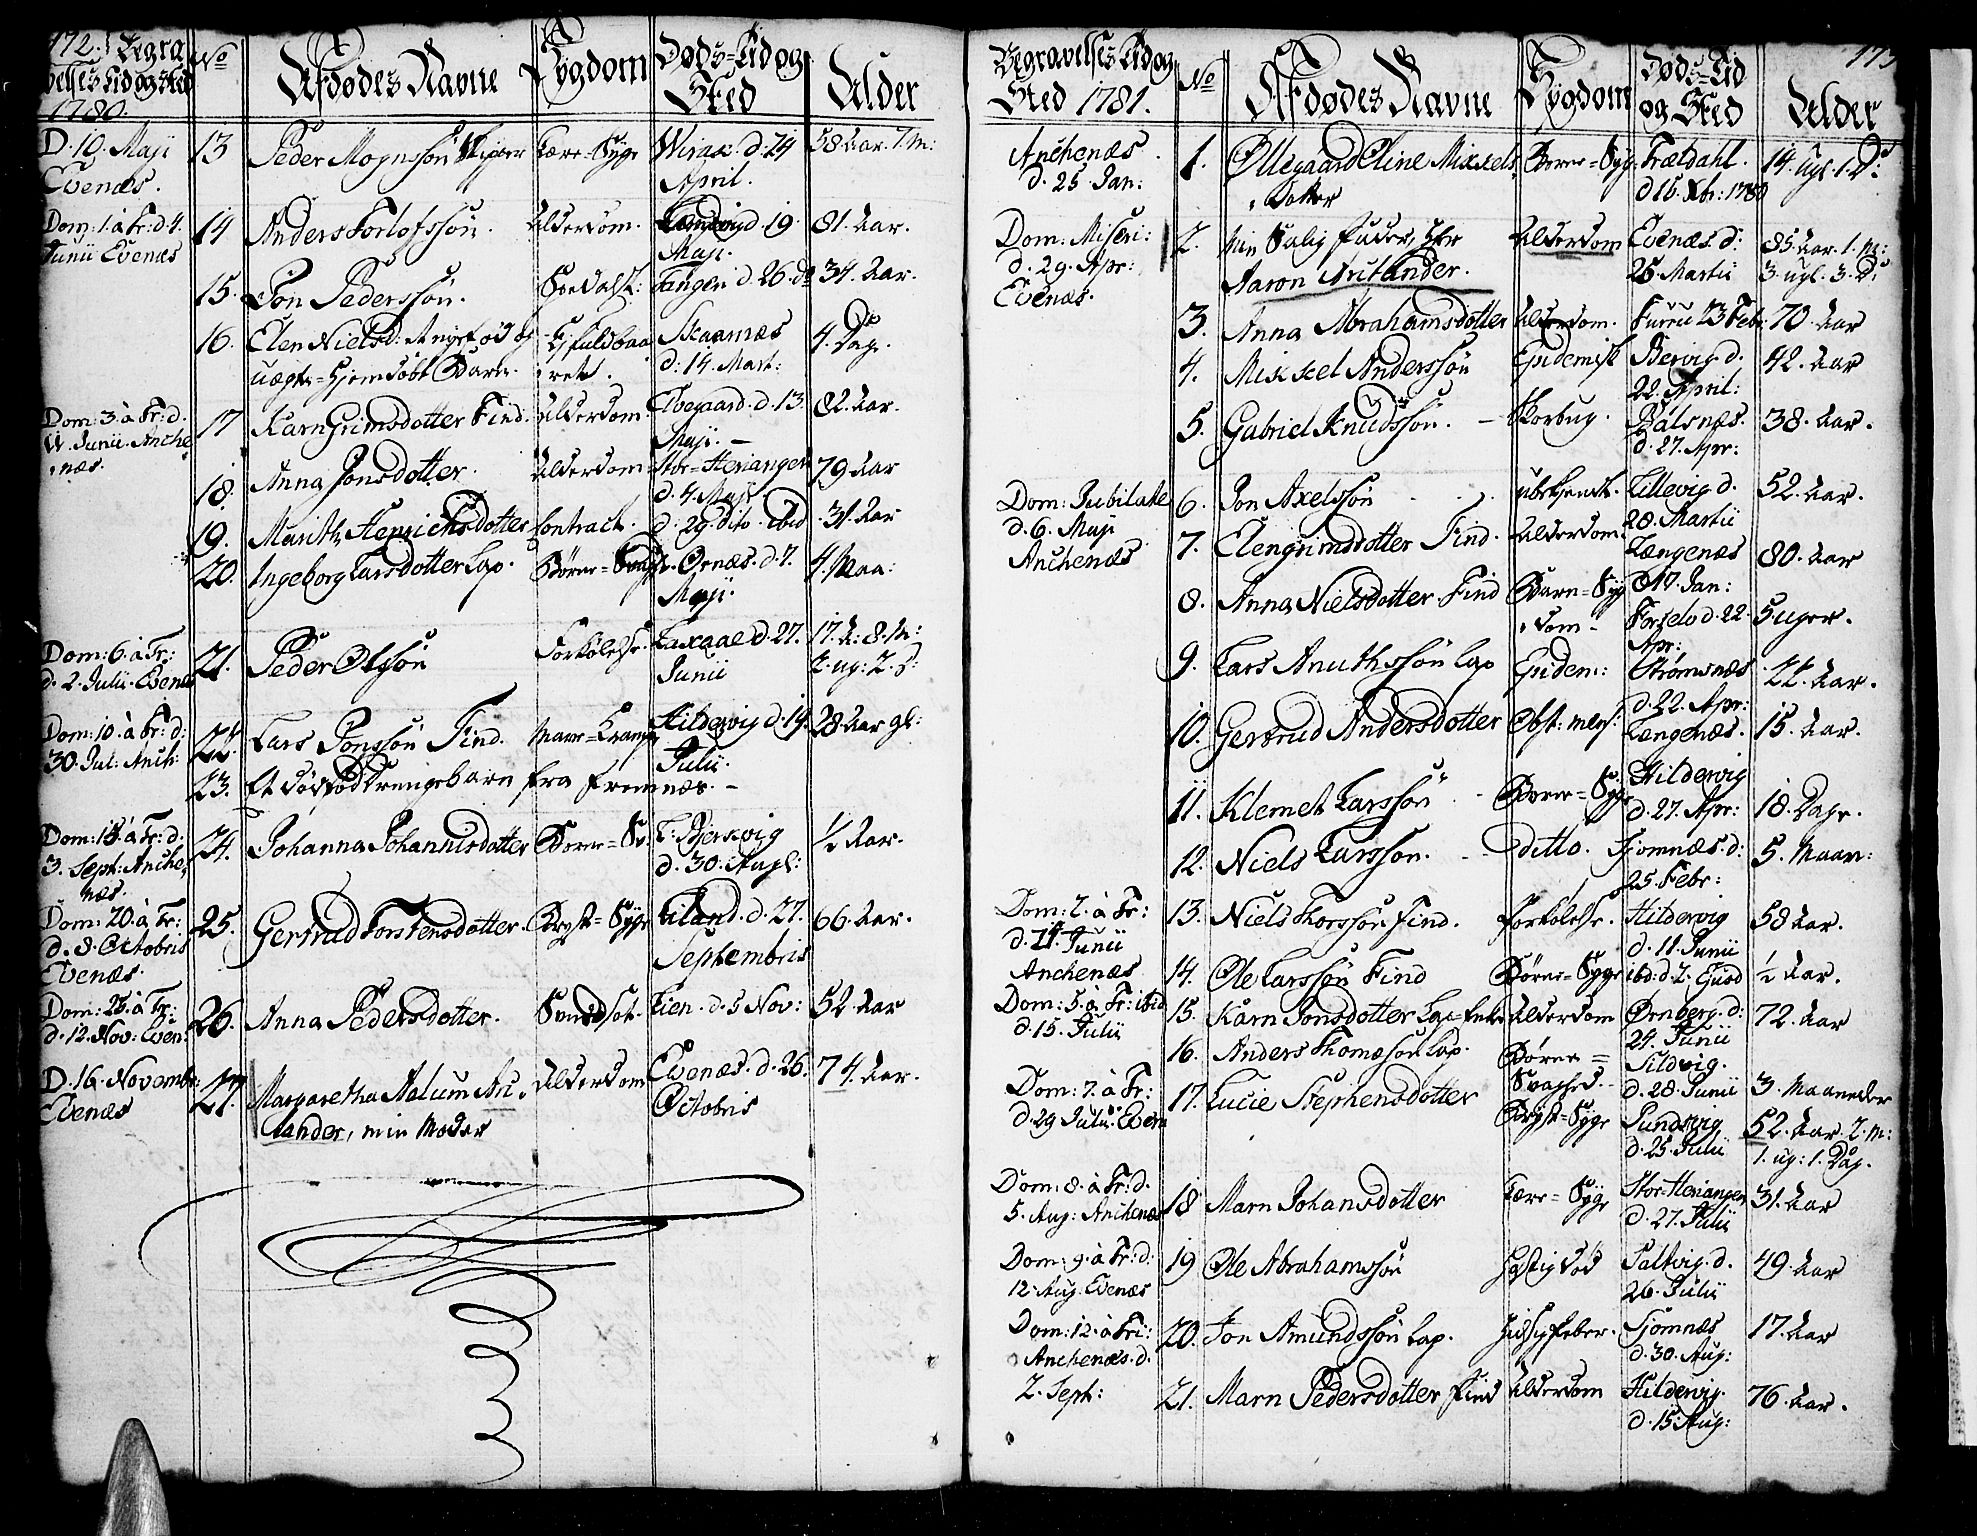 172. Begra
velses Tid og Sted
1780.
No
Afdødes Navne
Sygdom
Døds=Tid og
Sted
Alder
D. 10. Maji
Evenæs.
13
Peder Mognssøn
Tære=Syge
d. 24
April.
58 Aar. 7. M:
Dom: 1. à Tr: d. 4.
Junii Evenæs
14
Anders Torlofssøn.
Alderdom.
d. 19.
Maji.
81. Aar.
15.
Jon Pederssøn.
Tangen d. 26. do
34. Aar.
16.
Elen Nielsd:
uægte=hjemdøbt Barn.
Skaanæs
d: 14. Mart:
4. Dage.
Dom: 3. à Tr: d.
Junii. Anche
næs.
17
Karn Grimsdotter Find.
Alderdom
Elvegaard. d. 13.
Maji. –
82. Aar.
18.
Anna Jonsdotter.
Alderdom
Stor=Herjangen
d. 4. Maji
79 Aar
19.
Marith Henrichsdotter
Contract.
d. 29 dito. ibid
34. Aar
20.
Ingeborg Larsdotter Lap.
Børne=Svagh.
Ornæs. d. 7.
Maji.
4. Maa:
Dom: 6. à Tr:
d. 2. Julii. Evenæs
21.
Peder Olssøn
Forkølelse.
d. 27.
Junii
17. A: 8. M:
2. ug: 2. D:
Dom: 10. à Tr: d:
30. Jul: Anch:
22.
Lars Jonssøn Find.
Mave=Krampe
Hildervig d. 14.
Julii.
28 Aar gl:
23.
Et dødfød Drengebarn fra Fremnæs. –
Dom: 15. à Tr: d:
3. Sept: Anche,
næs.
24.
Johanna Johannisdotter
Børne=Sv:
L: Bjerkvig
d. 30. Aug:
½ Aar.
Dom: 20. à Tr:
d. 8. Octobris
Evenæs.
25.
Gertrud Torstensdotter.
Bryst=Syge
Liland. d. 27.
Septembris
66. Aar.
Dom: 25. à Tr:
d. 12. Nov: Even:
26.
Anna Pedersdotter.
Lien. d. 5 Nov:
52. Aar
D. 16. Novembr:
Evenæs
27
Margaretha Aalum Au,
lander, min Moder
Alderdom
Evenæs. d. 26.
Octobris
74. Aar.
173
Begravelses Tid og
Sted 1781.
No
Afdødes Navne
Sygdom
Døds=Tid
og Sted
Alder
Anchenæs
d. 25. Jan:
1.
Øllegaard Eline Mikkels,
Dotter
Børne=Syg:
Trældahl.
d 16. Xbr: 1780
14. ugl. 1. D:
Dom: Miseri:
d. 29. Apr:
Evenæs.
2.
Min Salig Fader, Hr
Aaron Arctander.
Alderdom
Evenæs d:
26. Martii
85. Aar. 1. M:
3. ugl. 3. D:
3.
Anna Abrahamsdotter
Alderdom.
23 Febr:
70. Aar
4.
Mikkel Anderssøn
Epidemisk
d.
22. April:
42. Aar
5.
Gabriel Knudssøn. –
Skorbug.
Balsnæs.
d. 27. Apr:
38. Aar.
Dom: Jubilate
d. 6. Maji
Anchenæs
6.
Jon Axelssøn
ubekjendt.
Lillevig d.
28. Martii
52. Aar.
7.
Elen Grimsdotter Find.
Alderdom
Længenæs
d 17. Jan:
80. Aar
8.
Anna Nielsdotter Find
Barn=Syg
dom
d. 22.
Apr:
5 uger.
9.
Lars Lap
Epidem:
Strømsnæs
d. 22. Apr:
22. Aar.
10.
Gertrud Andersdotter
Obst: mens:
Længenæs.
15. Aar.
11.
Klemet Larssøn
Børne=Syge
Hildervig
d. 27. Apr:
18. Dage.
12.
Niels Larssøn.
ditto.
Sjomnæs. d:
25. Febr:
5. Maan:
Dom: 2. à Tr:
d. 24. Junii
Anchenæs
13.
Niels Thorssøn Find.
Forkølelse.
Hildervig
d. 11. Junii
58 Aar.
14.
Ole Larssøn Find
Børne=Syge
ibd: d. 2. Ejusd
½ Aar.
Dom: 5. à Tr: ibid
d. 15. Julii
15.
Karn Jonsdotter Lap=Enke
Alderdom
Ørnberg. d:
24. Junii
72. Aar
16.
Anders Thomæsøn Lap.
Børne=
Svaghed.
Sildvig.
d. 28. Junii
3. Maaneder
Dom: 7. à Tr:
d. 29 Julii. Even
17.
Lucie Stephensdotter
Bryst=Syge
Sundsvig
d. 25. Julii
52. Aar. 2. M:
1. ug: 1. Dag.
Dom: 8. à Tr: d.
5. Aug: Anchenæs
18
Marn Johansdotter
Tære=Syge
Stor=Herjangen
d. 27. Julii
31. Aar
Dom: 9. à Tr: d:
12. Aug. Evenæs
19
Ole Abrahamssøn
Hastig Død
Saltvig. d.
26. Julii
49. Aar
Dom: 12. à Tri:
Anchenæs. d.
2. Sept:
20.
Jon Amundssøn Lap.
Hidsig feber.
Sjomnæs
d. 30. Aug:
17. Aar
21.
Marn Pedersdotter Find
Alderdom
Hildervig.
d. 15. Aug:
76. Aar.